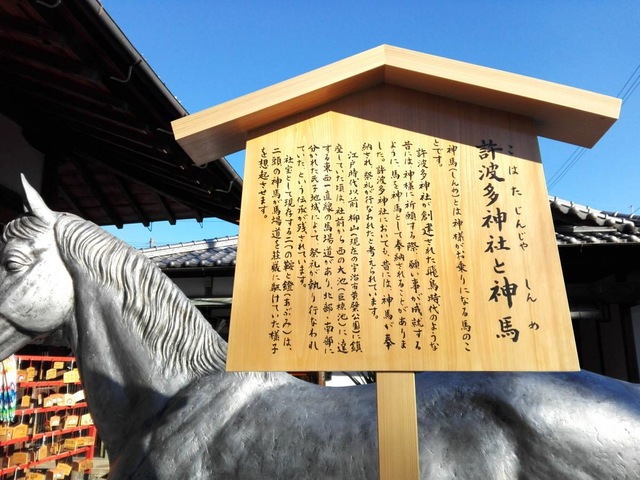 こはたじんじゃ しんめ
許波多神社と神馬
神馬(しんめ)とは神様がお乗りになる馬のこ
とです。
許波多神社が創建された飛鳥時代のような
昔には、神様に祈願する際、願い事が成就する
ように、馬を神馬として奉納されることがありま
した。許波多神社においても、昔には、神馬が奉
納され、祭礼が行なわれたと考えられています。
江戸時代以前、柳山(現在の宇治市黄檗公園)に鎮
座していた頃は、社前から西の大池(巨椋池)に達
する東西一直線の馬場道があり、北部・南部に
分かれた氏子地域によって、祭礼が執り行なわれ
ていたという伝承が残されています。
社宝として現存する二つの鞍と鐙(あぶみ)は、
二頭の神馬が馬場道を荘厳に駆けていた様子
を想起させます。